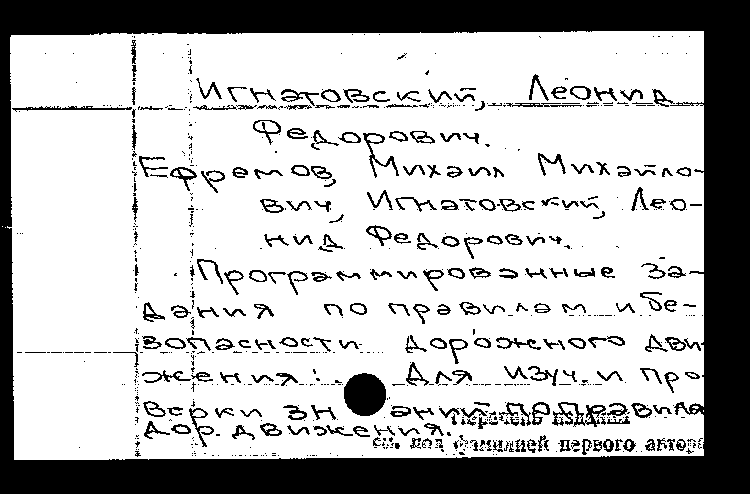 Игнатовский, Леонид
Федорович.
Ефремов, Михаил Михайло-
вич, Игнатовский, Лео-
нид Федорович.
Программированные за-
дания по правилам и бе-
вопасности дорожного дви-
жения: Для изуч. и про-
верки знаний по правила
дор. движения.
Перечень изданий
см. под фамилией первого автора